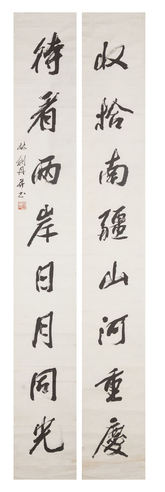 收拾南疆山河重慶
待看兩岸日月同光